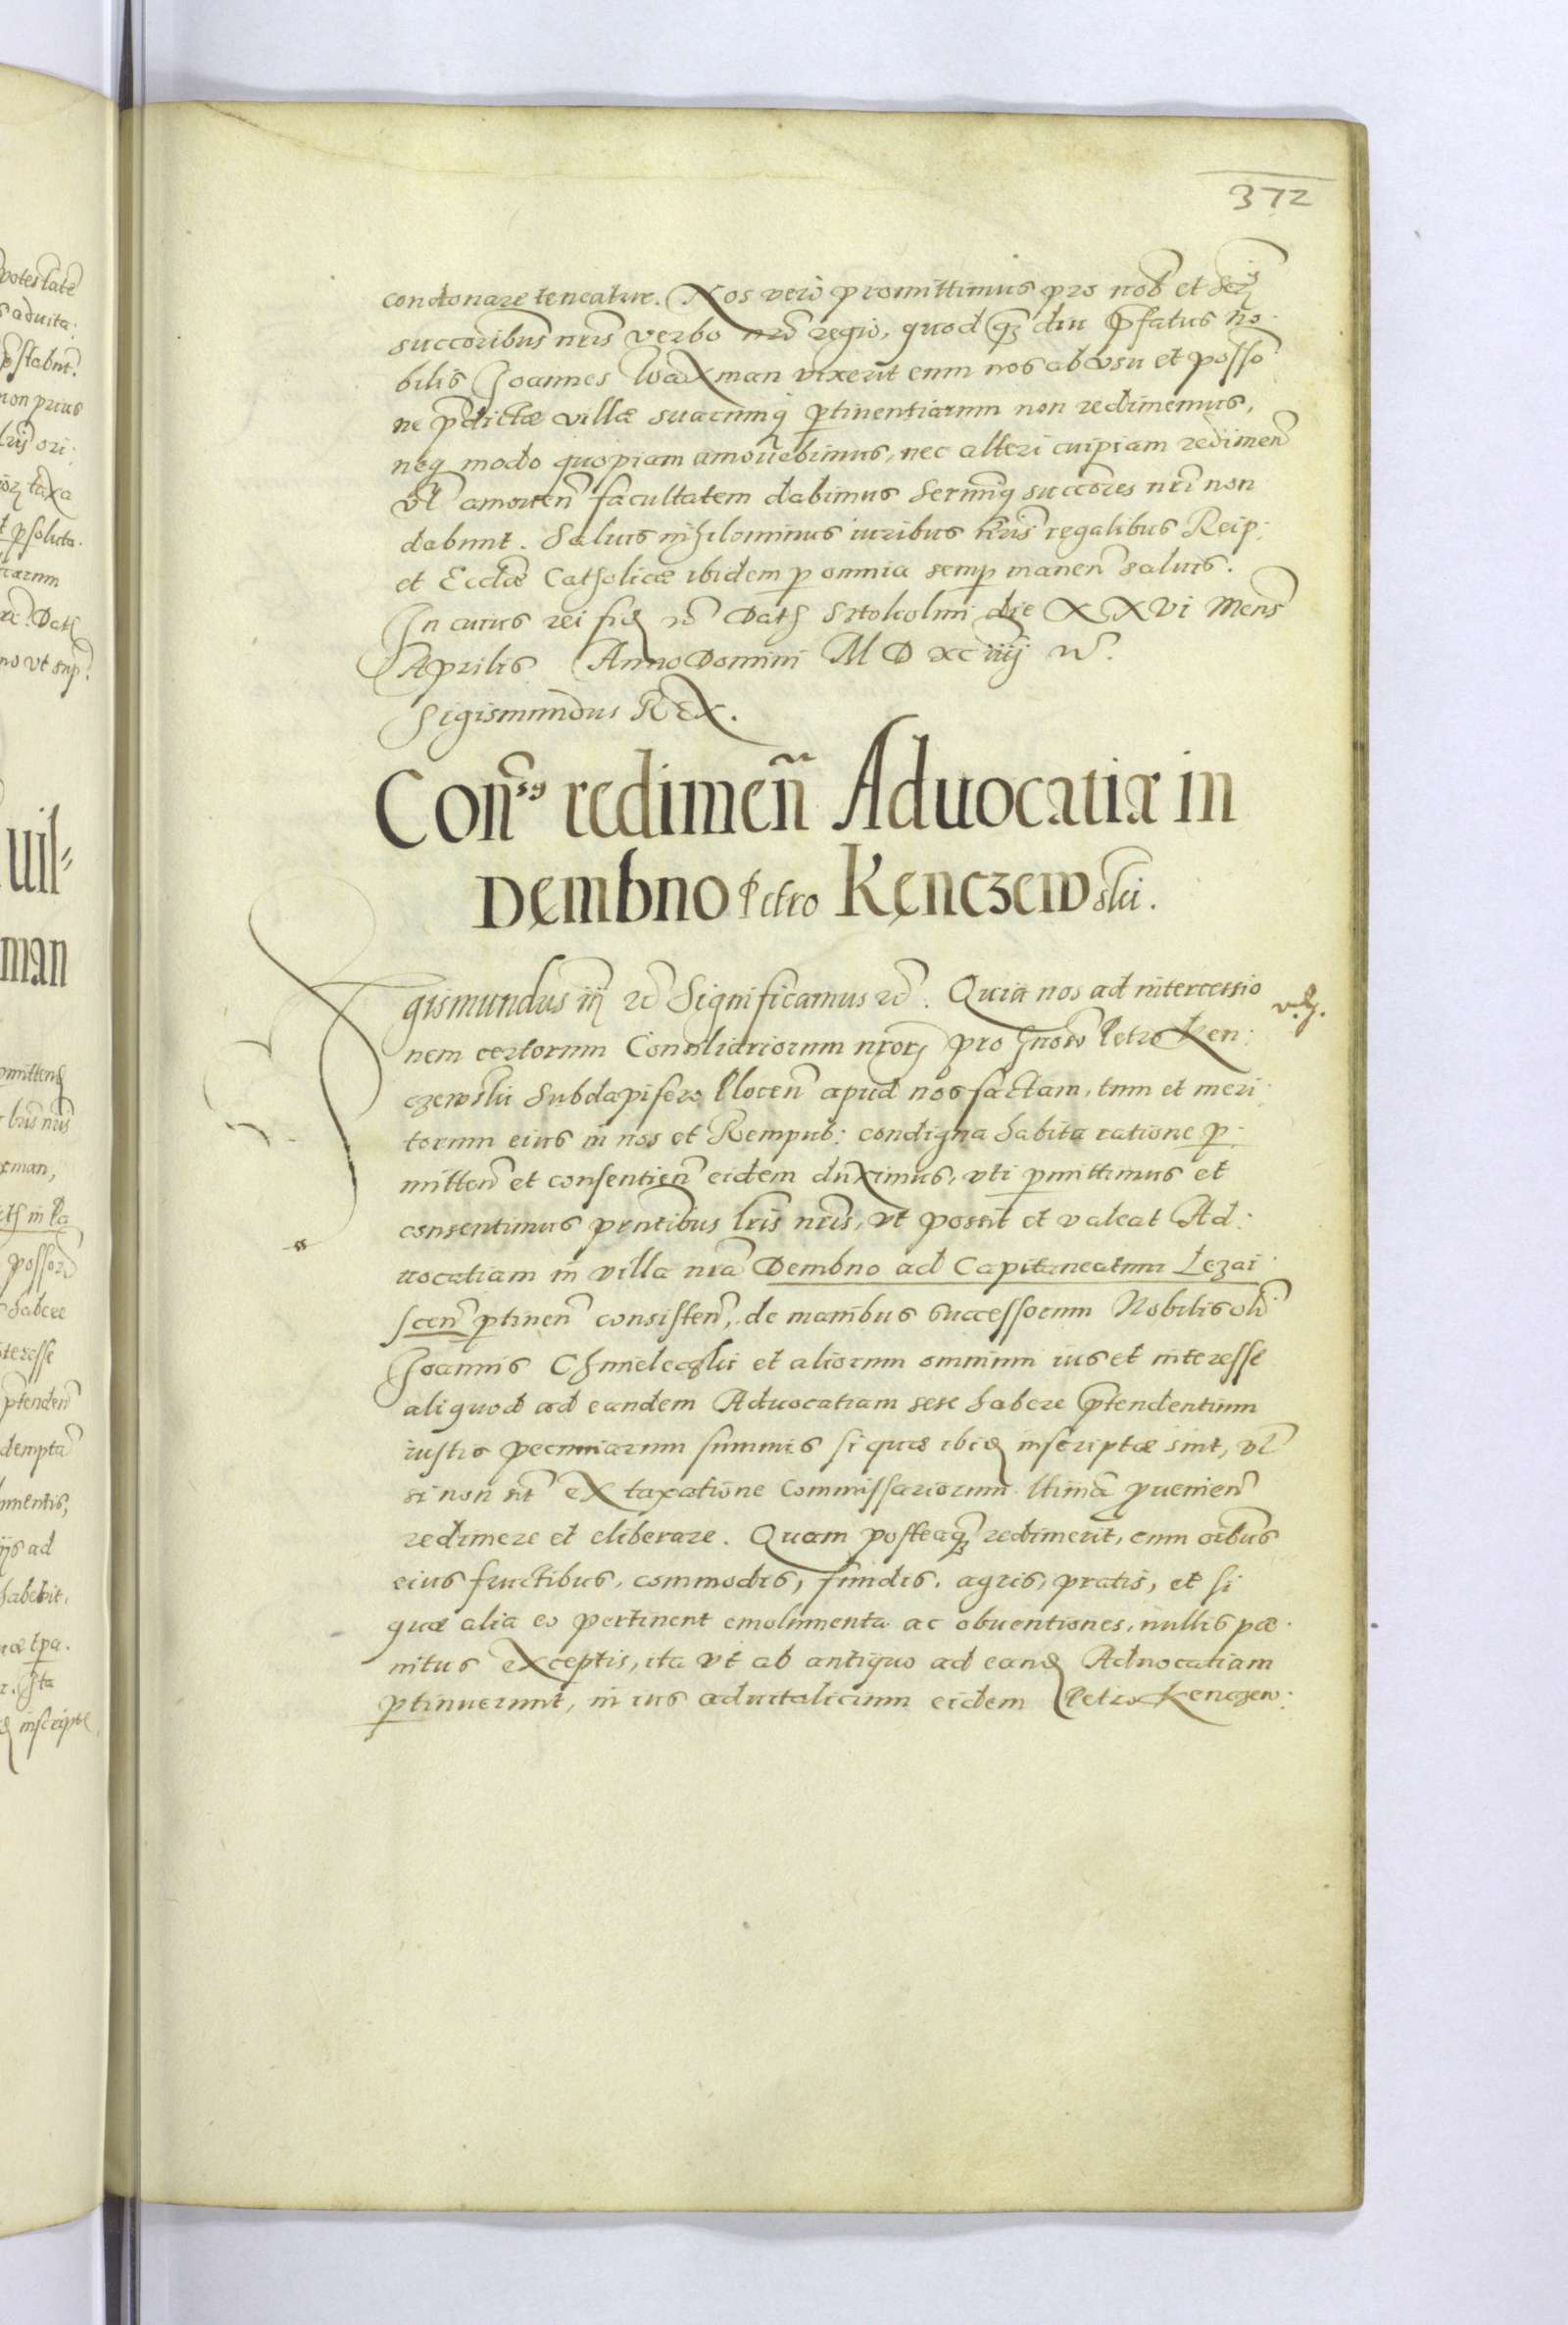 372
condonare teneatur. Nos vero promittimus pro nob et Sermis
succoribus nris verbo nro regio, quod qz diu Pfatus No-
bilis Joannes Waxman vixerit eum nos ab vsu et posso
ne pdictæ villæ suarumq ptinentiarum non redimemus,
neq modo quopiam amouebimus, nec alteri cuipiam redimen
vl amouen facultatem dabimus Sermiq succores nri non
dabunt. Saluis nihilominus iuribus nris regalibus Reip:
et Ecclæ Catholicæ ibidem p omnia semp manen saluis.
In cuius rei fid etc Dat Stokolmi die XXVI Mens
Aprilis Anno Domini M D XC iiij etc.
Sigismundus REX.
Cons redimen Aduocatiæ in
Dembno Petro Kenczewski.
Sigismundus iij etc Significamus etc. Quia nos ad intercessio
nem certorum Consiliariorum nrorz pro Gnoso Petro Ken:
czewski Subdapifero Plocen apud nos factam, tum et meri
torum eius in nos et Rempub: condigna habita ratione p-
mitten et consentien eidem duximus, vti pmittimus et
consentimus prntibus lris nris, vt possit et valeat Ad:
uocatiam in villa nra Dembno ad Capitaneatum Lezai
scen ptinen consisten, de manibus successorum Nobilis oli
Joannis Chmielecski et aliorum omnium ius et interesse
aliquod ad eandem Aduocatiam sese habere Ptendentium
iustis pecuniarum summis si quæ ibid inscriptæ sint, vl
si non sit ex taxatione Commissariorum ltima puenien
redimere et eliberare. Quam posteaqz redimerit, cum oibus
eius fructibus, commodis, fundis, agris, pratis, et si
quæ alia eo pertinent emolumenta ac obuentiones, nullis pæ-
nitus exceptis, ita vt ab antiquo ad eand Aduocatiam
ptinuerunt, in ius aduitalicium eidem Petro Kenczew: